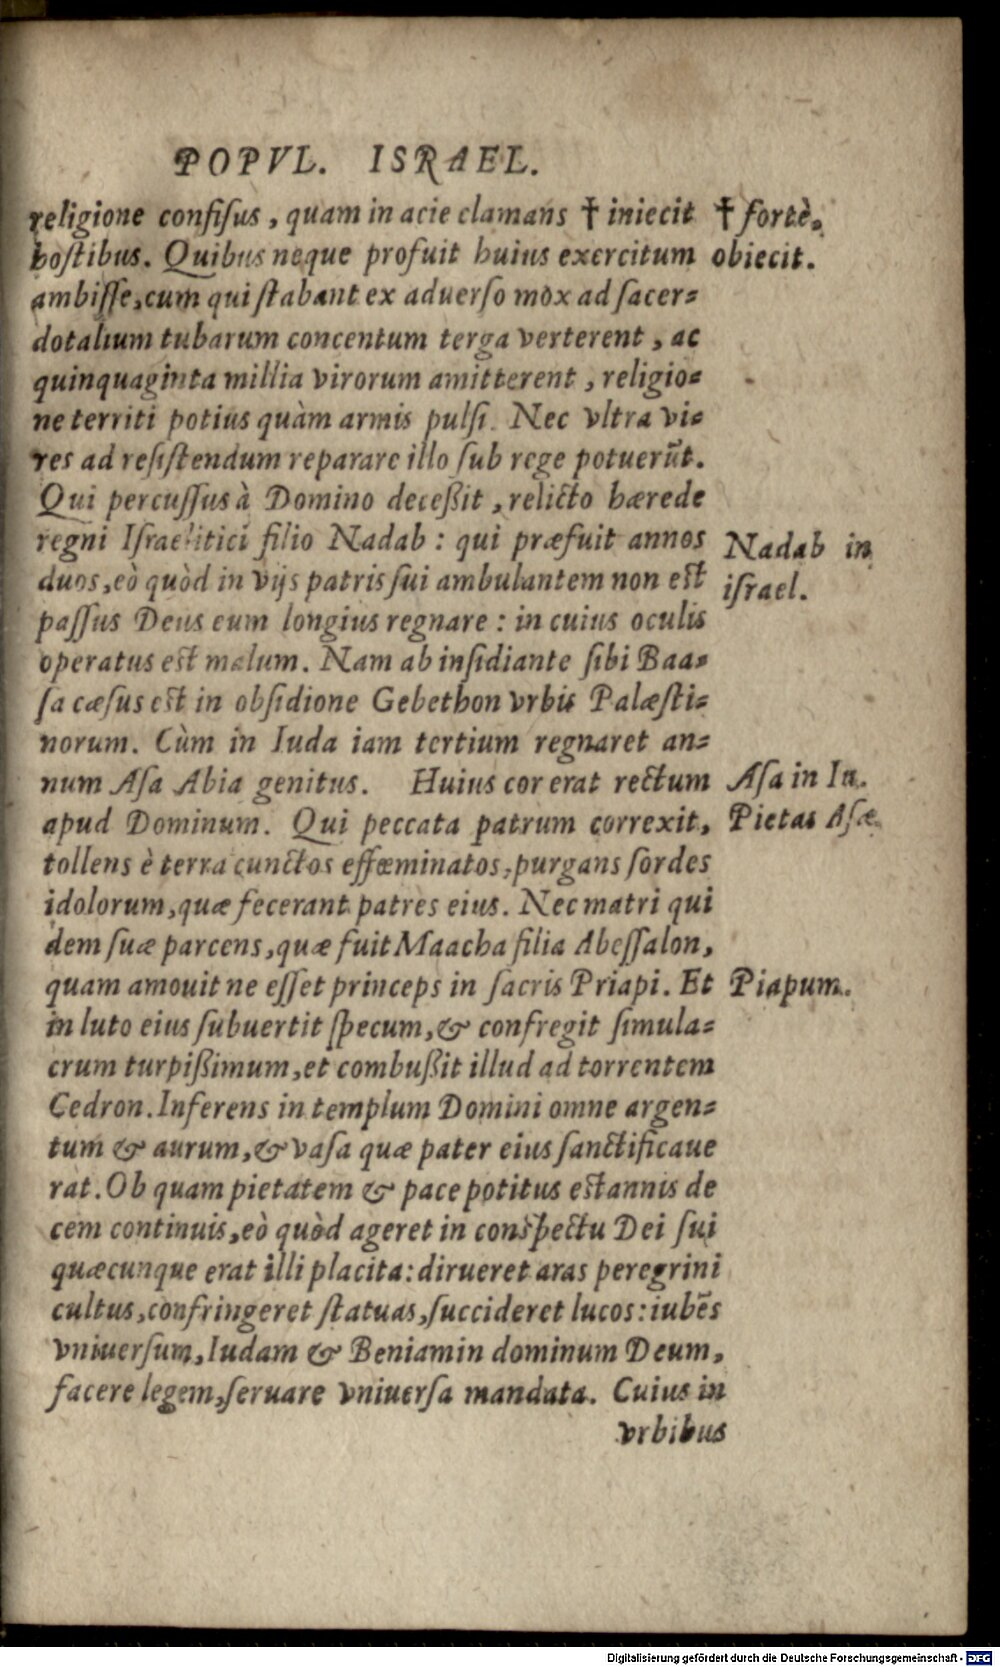 POPVL. ISRAEL.
religione confiſus, quam in acie clamans † iniecit
† fortè.
hoſtibus. Quibus neque profuit huius exercitum
obiecit.
ambiſſe, cum qui ſtabant ex aduerſo mox ad ſacer-
dotalium tubarum concentum terga verterent, ac
quinquaginta millia virorum amitterent, religio-
ne territi potius quàm armis pulſi. Nec vltra vi-
res ad reſiſtendum reparare illo ſub rege potuerūt.
Qui percuſſus à Domino deceßit, relicto hærede
regni Iſraelitici filio Nadab: qui præfuit annos
Nadab in
duos, eò quòd in vijs patris ſui ambulantem non eſt
iſrael.
paſſus Deus eum longius regnare: in cuius oculis
operatus eſt malum. Nam ab inſidiante ſibi Baa-
ſa cæſus eſt in obſidione Gebethon vrbis Palæſti-
norum. Cùm in Iuda iam tertium regnaret an-
num Aſa Abia genitus. Huius cor erat rectum
Aſa in Iu.
apud Dominum. Qui peccata patrum correxit,
Pietas Aſæ.
tollens è terra cunctos effœminatos, purgans ſordes
idolorum, quæ fecerant patres eius. Nec matri qui
dem ſuæ parcens, quæ fuit Maacha filia Abeſſalon,
quam amouit ne eſſet princeps in ſacris Priapi. Et
Piapum.
in luto eius ſubuertit ſpecum, & confregit ſimula-
crum turpißimum, et combußit illud ad torrentem
Cedron. Inferens in templum Domini omne argen-
tum & aurum, & vaſa quæ pater eius ſanctificaue
rat. Ob quam pietatem & pace potitus eſt annis de
cem continuis, eò quòd ageret in conſpectu Dei ſui
quæcunque erat illi placita: dirueret aras peregrini
cultus, confringeret ſtatuas, ſuccideret lucos: iubēs
vniuerſum, Iudam & Beniamin dominum Deum,
facere legem, ſeruare vniuerſa mandata. Cuius in
vrbibus
Digitalisierung gefördert durch die Deutsche Forschungsgemeinschaft - DFG